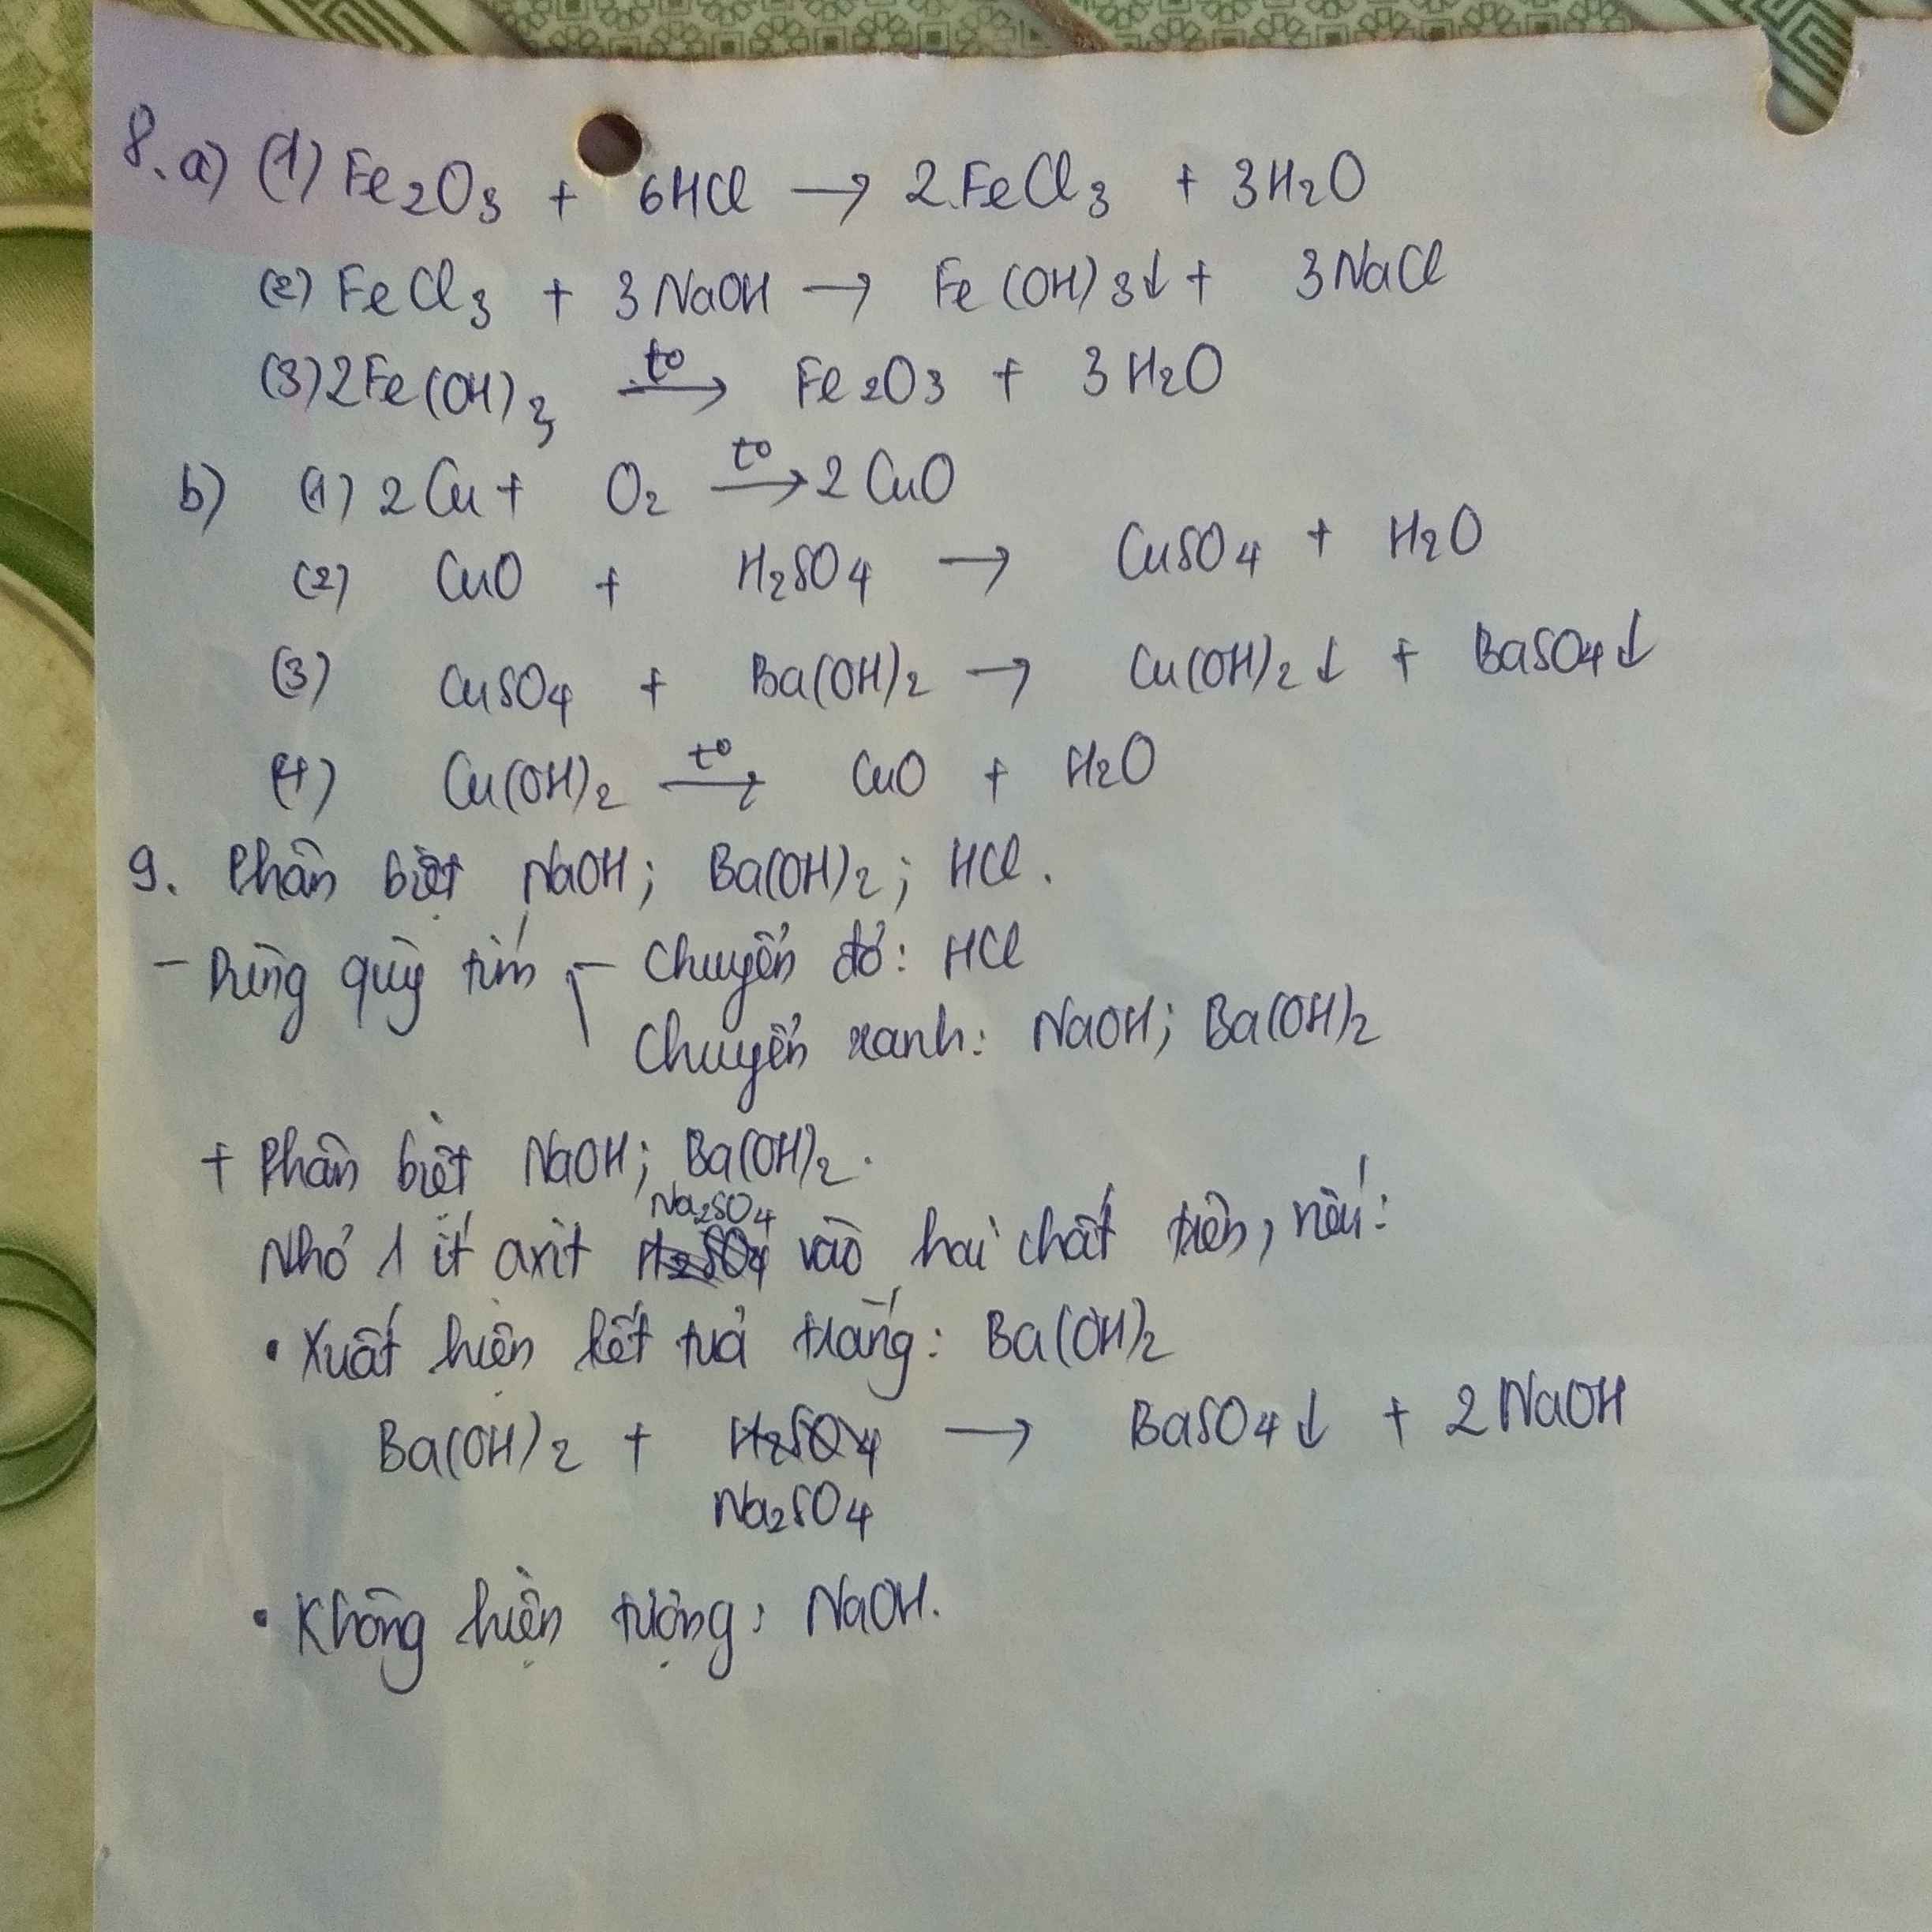 8. a) (1) Fe2O3 + 6HCl → 2FeCl3 + 3H2O
(2) FeCl3 + 3NaOH → Fe(OH)3↓ + 3NaCl
(3) 2Fe(OH)3 —t°→ Fe2O3 + 3H2O
b) (1) 2Cu + O2 —t°→ 2CuO
(2) CuO + H2SO4 → CuSO4 + H2O
(3) CuSO4 + Ba(OH)2 → Cu(OH)2↓ + BaSO4↓
(4) Cu(OH)2 —t°→ CuO + H2O
9. Phân biệt NaOH; Ba(OH)2; HCl.
- Dùng quỳ tím - Chuyển đỏ: HCl
Chuyển xanh: NaOH; Ba(OH)2
+ Phân biệt NaOH; Ba(OH)2.
Na2SO4
Nhỏ 1 ít axit H2SO4 vào hai chất trên, nếu:
• Xuất hiện kết tủa trắng: Ba(OH)2
Ba(OH)2 + H2SO4 → BaSO4↓ + 2NaOH
Na2SO4
• Không hiện tượng: NaOH.